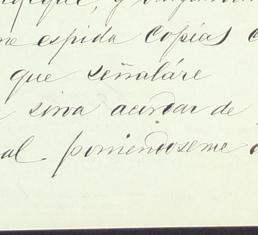 espida copias
que señaláre
sirva acordar de
poniendoseme